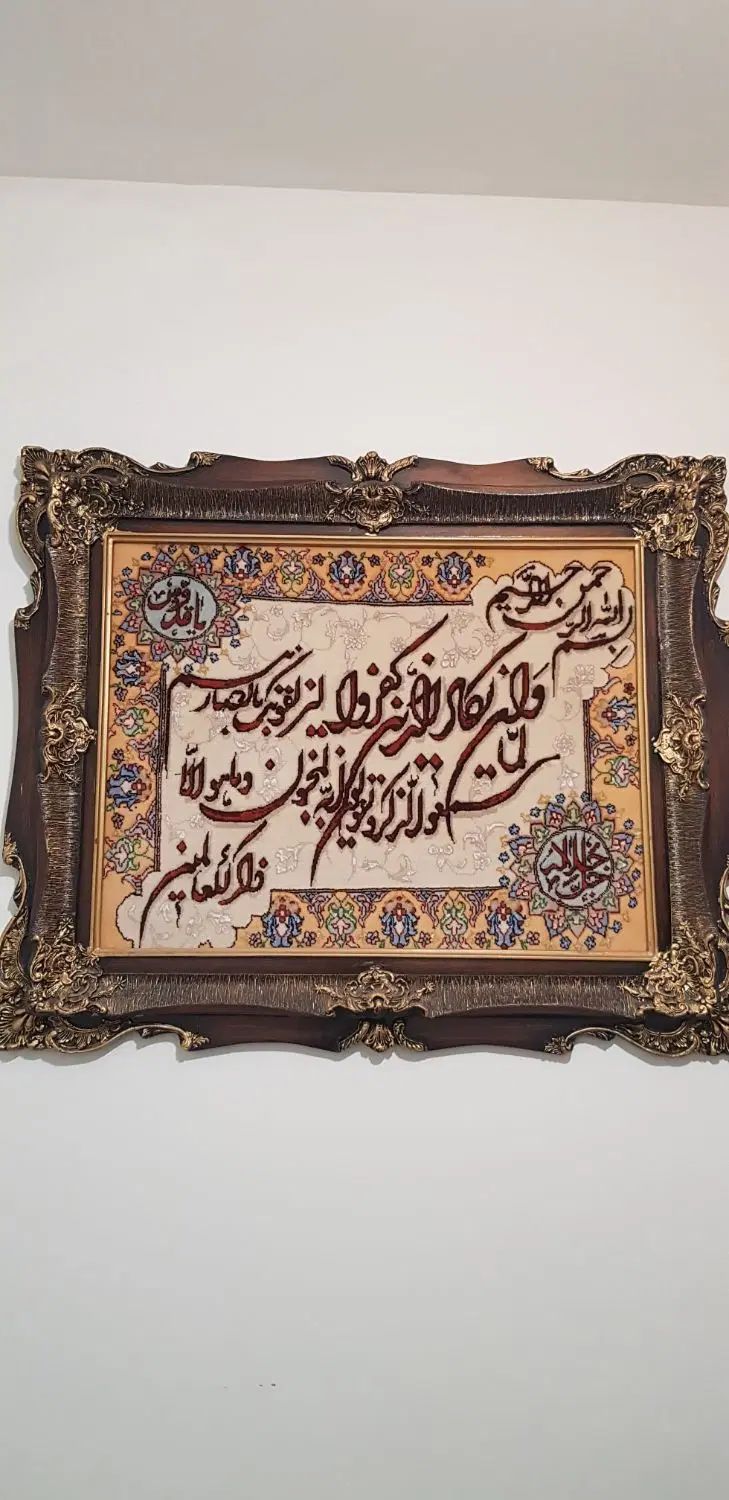 یا قدوس
بسم الله الرحمن الرحیم
وان یکاد الذین کفروا لیزلقونک بابصارهم
لمّا سمعوا الذکر و یقولون انه لمجنون وما هو الاّ
ذکر للعالمین
جل جلاله